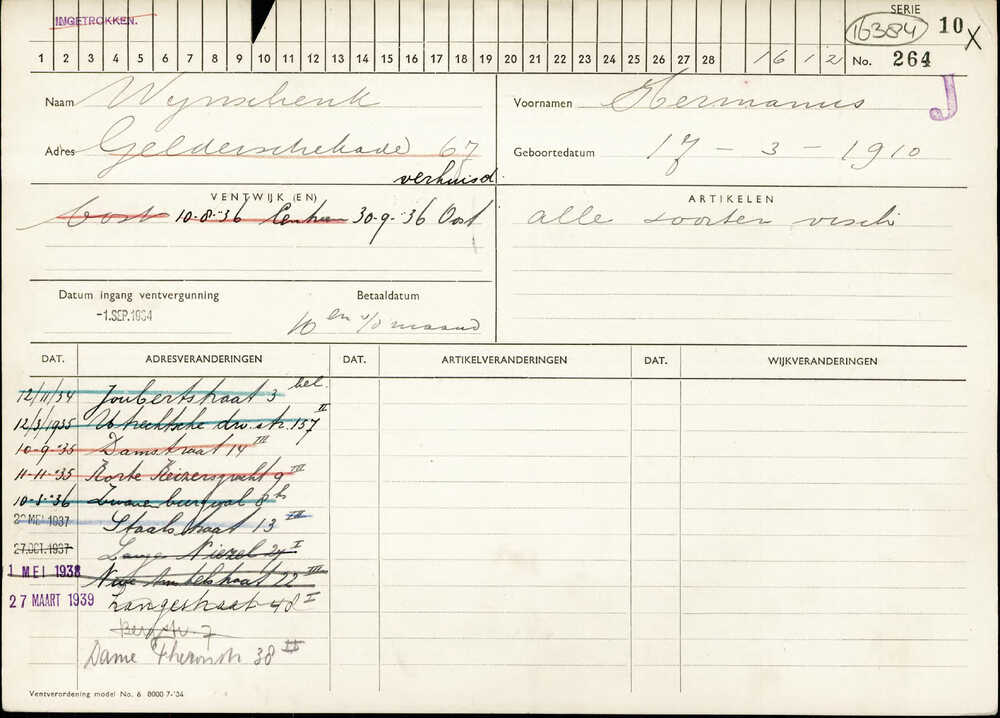 INGETROKKEN.
SERIE
16384 10 X
1 2 3 4 5 6 7 8 9 10 11 12 13 14 15 16 17 18 19 20 21 22 23 24 25 26 27 28 16 12 No. 264
J
Naam Wynschenk Voornamen Hermanus
Adres Gelderschekade 67 Geboortedatum 17 - 3 - 1910
verhuisd.
VENTWIJK (EN) ARTIKELEN
Oost 10-8-'36 Centrum 30-9-'36 Oost alle soorten visch
Datum ingang ventvergunning Betaaldatum
-1.SEP.1934 10en v/d maand
DAT. ADRESVERANDERINGEN DAT. ARTIKELVERANDERINGEN DAT. WIJKVERANDERINGEN
12/11/34 Joubertstraat 3 bel.
12/3/1935 Utrechtsche dw. str. 157 II
10-9-'35 Damstraat 14 III
11-11-'35 Korte Keizersgracht 9 III
10-3-'36 Zwanenburgwal 8 hs
28 MEI 1937 Staalstraat 13 III
27.OCT.1937 Lange Niezel 24 I
1 MEI 1938 Nwe Amstelstraat 22 III
27 MAART 1939 Langestraat 48 I
Bergstr. 7
Dame Theronstr 38 II
Ventverordening model No. 6 8000 7-'34